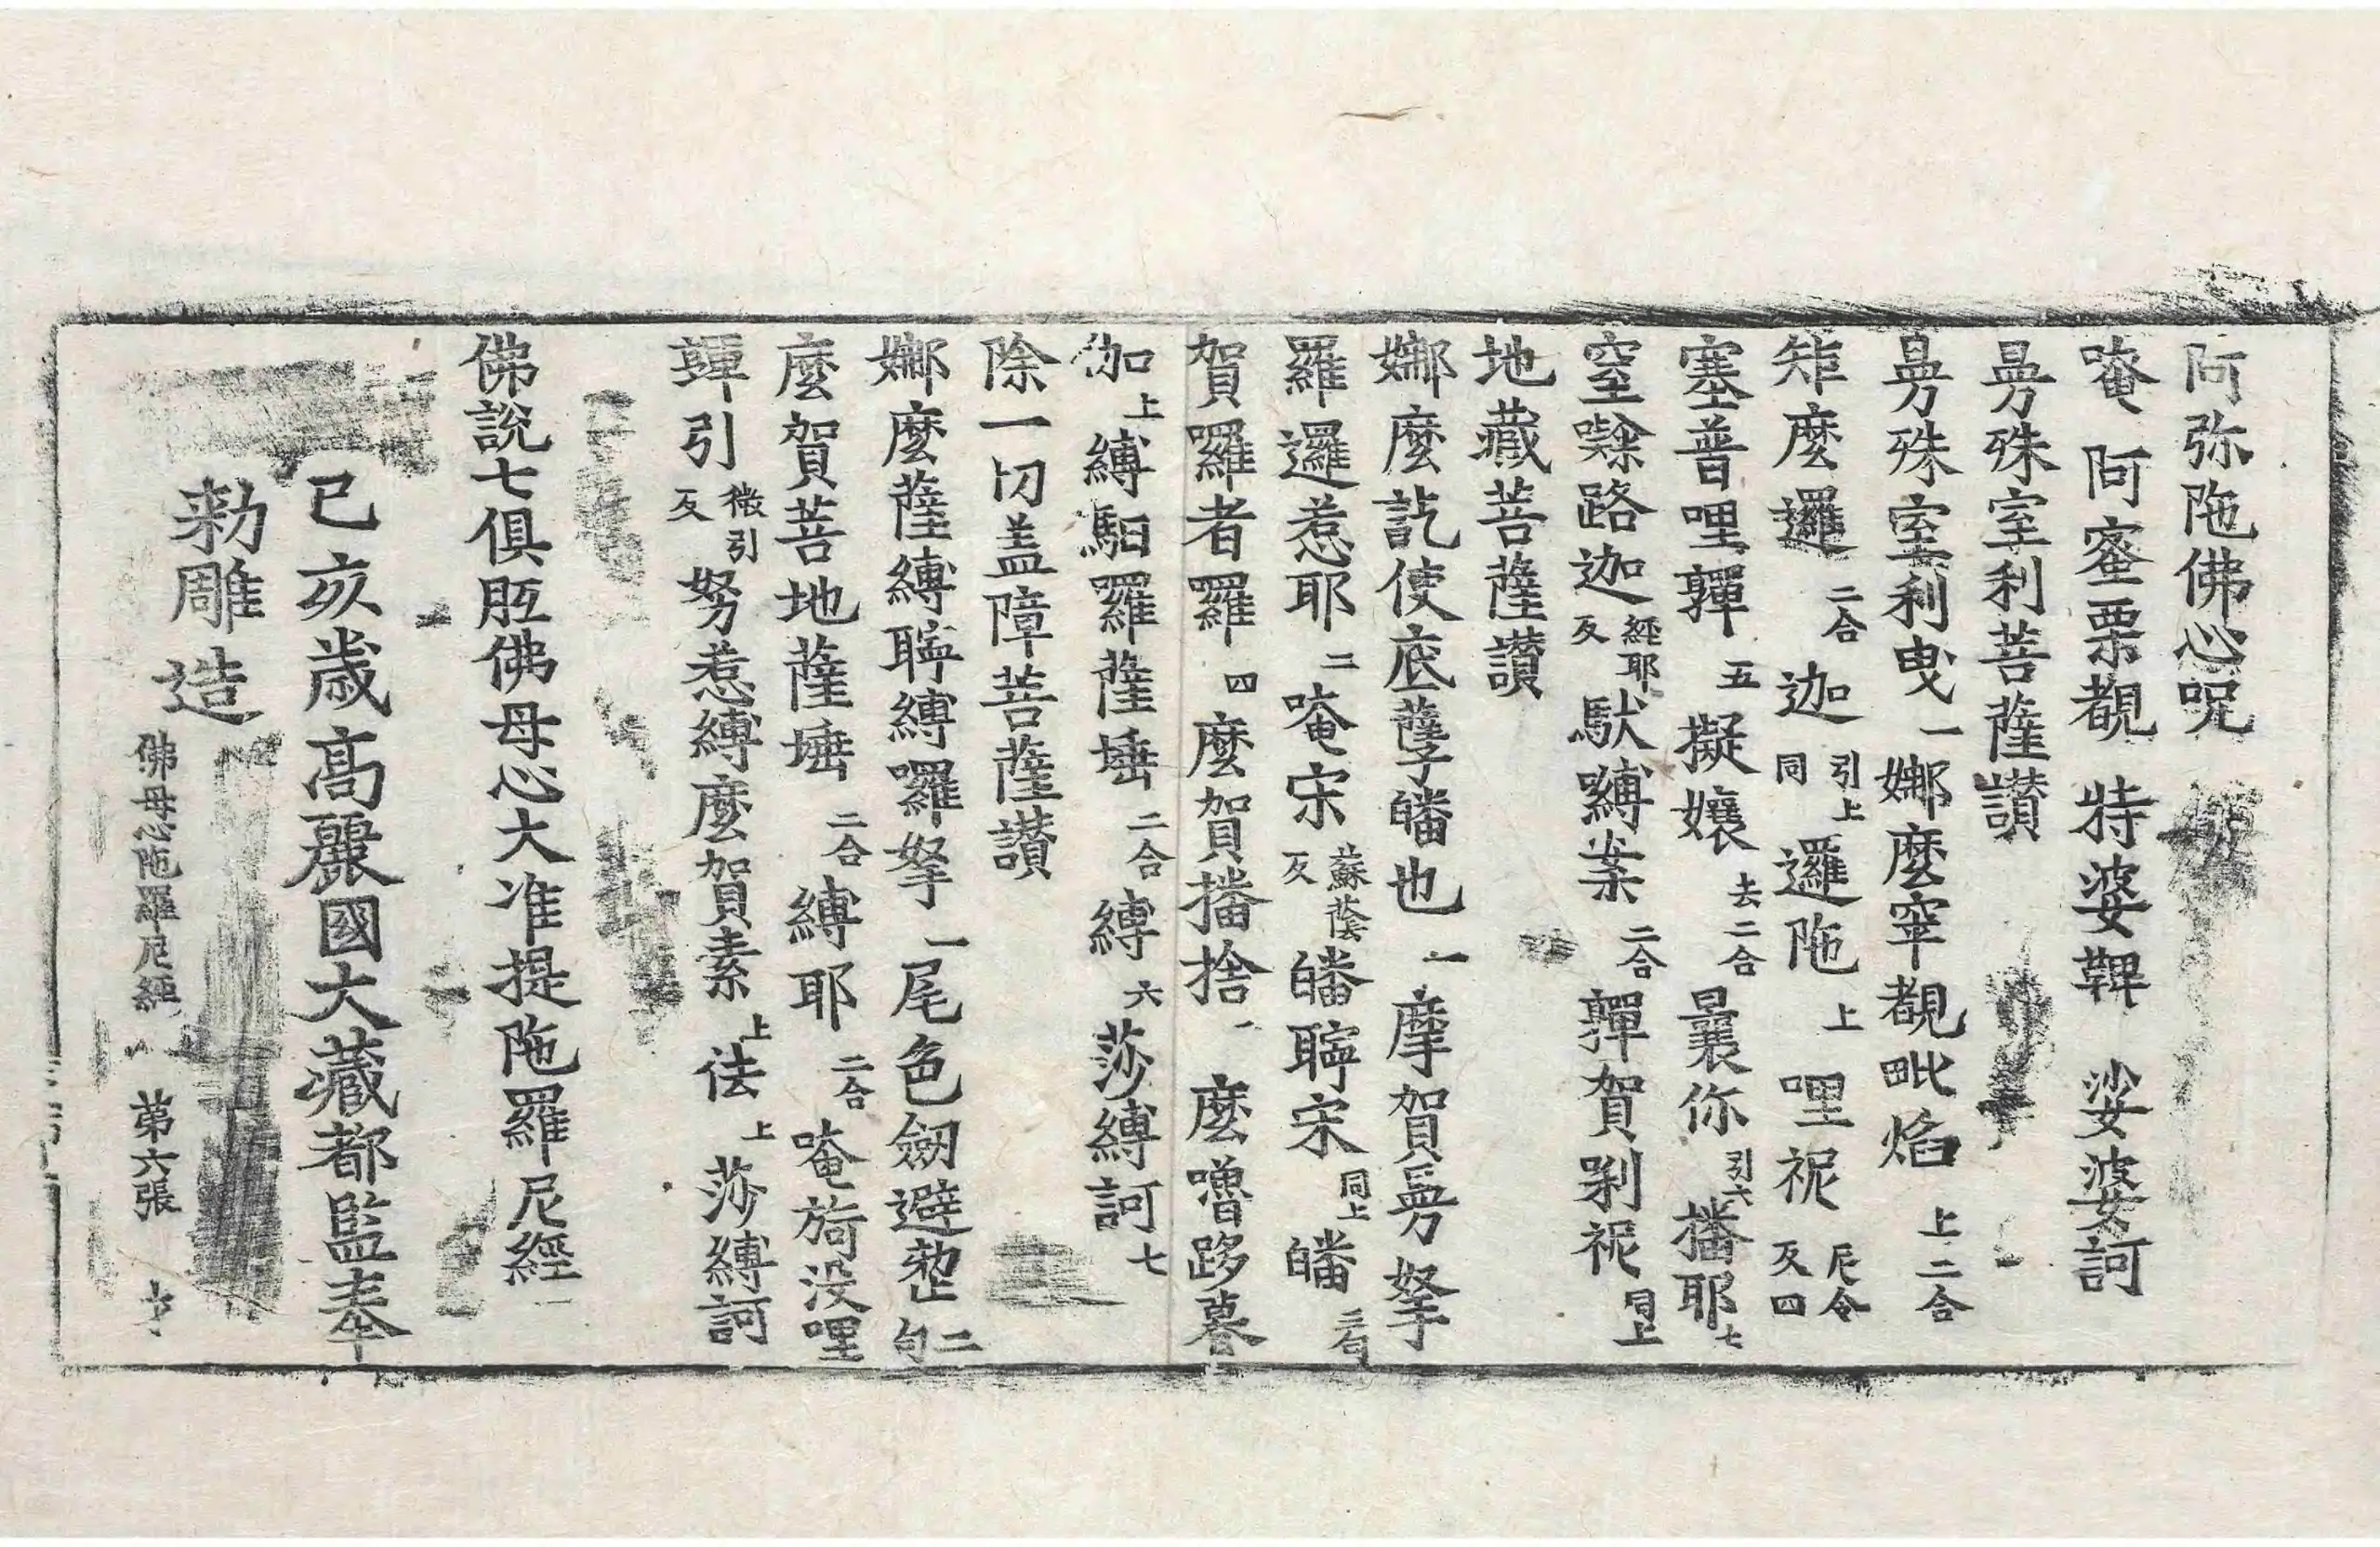 阿弥陁佛心呪
唵 阿蜜栗覩 特婆鞞 娑婆訶
曼殊室利菩薩讃
曼殊室利曳一娜麽窣覩毗焰上二合
矩麽邏二合迦引上同邏陁上哩袮尼令反四
塞普哩韗五擬孃去二合曩你引六播耶七
窒㘑路迦經耶反馱嚩業二合韗賀剃袮同上
地藏菩薩讃
娜麽訖使底孽皤也一摩賀曼拏
羅邏惹耶二唵宋蘇蔭反皤聹宋同上皤三句
賀囉者羅四麽賀播捨 麽嚕跢暮
伽上縛馹羅薩埵二合縛六莎縛訶七
除一切盖障菩薩讃
娜麽薩縛聹縛囉拏一尾色劒避㢤二句
麽賀菩地薩埵二合縛耶二合唵旖没哩
䩅引微引反努惹縛麽賀素上佉上莎縛訶
佛說七俱胝佛母心大准提陁羅尼經
己亥歲高麗國大藏都監奉
勑雕造
佛母心陁羅尼經 第六張